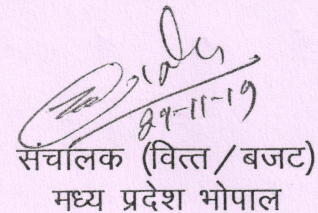 29-11-19
संचालक (वित्त/बजट)
मध्य प्रदेश भोपाल